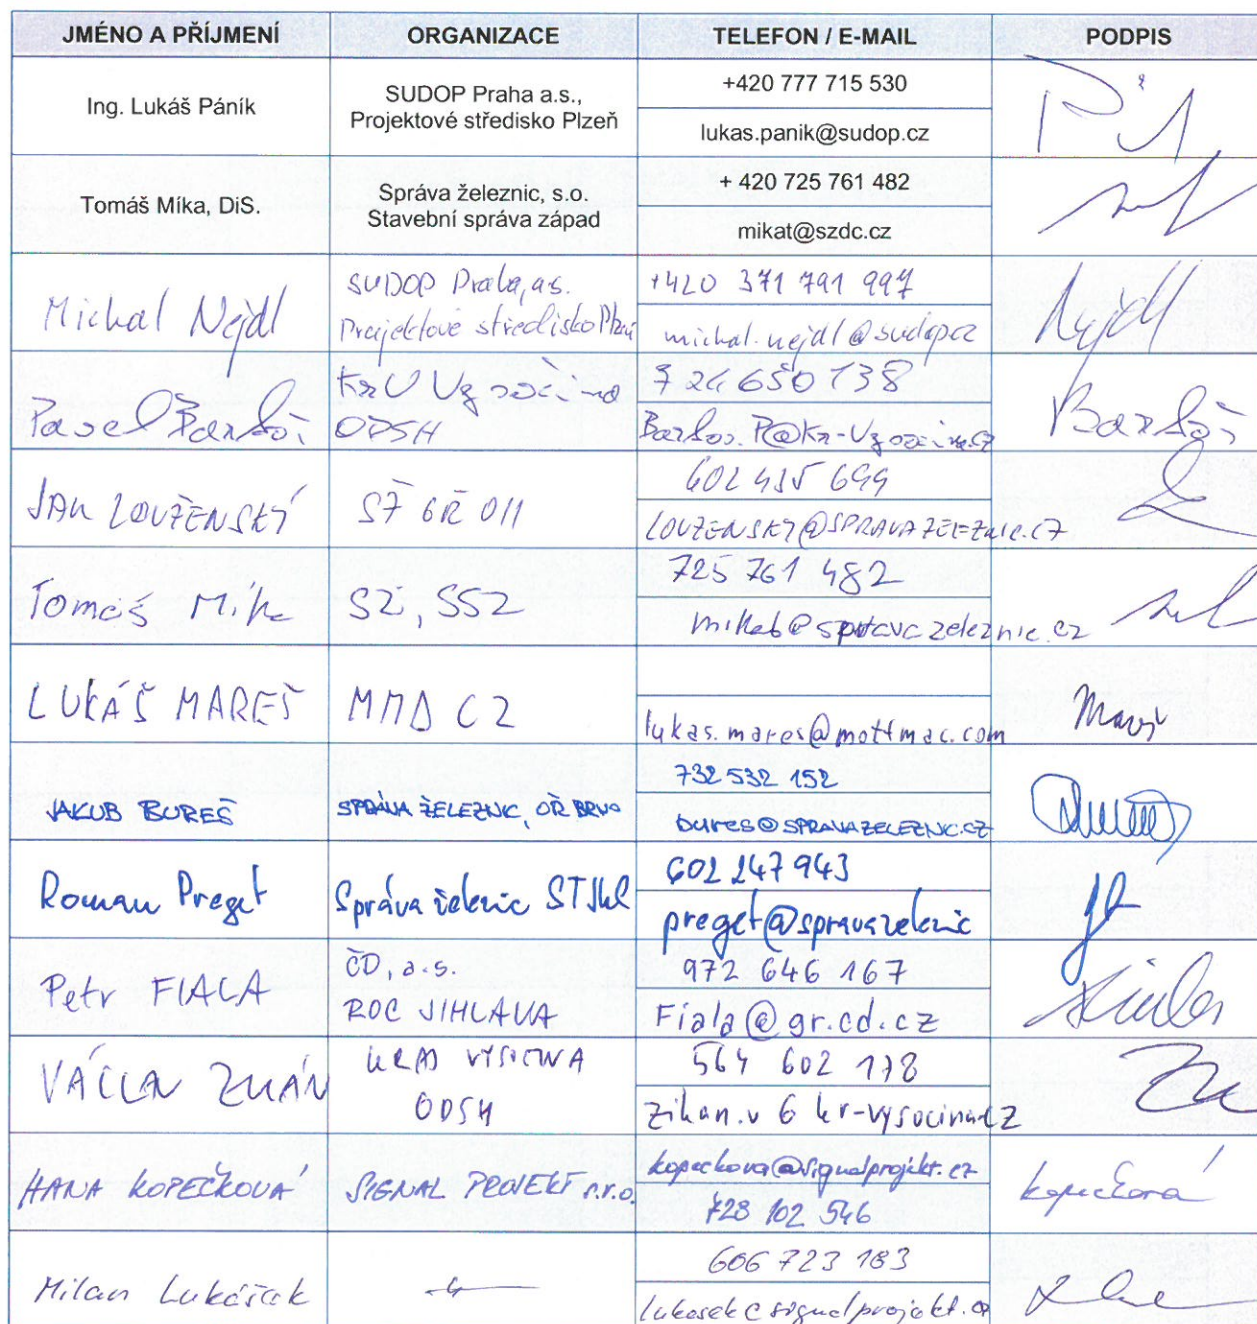 JMÉNO A PŘÍJMENÍ ORGANIZACE TELEFON / E-MAIL PODPIS
Ing. Lukáš Páník
SUDOP Praha a.s.,
Projektové středisko Plzeň
+420 777 715 530
lukas.panik@sudop.cz
Tomáš Míka, DiS.
Správa železnic, s.o.
Stavební správa západ
+ 420 725 761 482
mikat@szdc.cz
Michal Nejdl
SUDOP Praha, a.s.
Projektové středisko Plzeň
+420 371 791 997
michal.nejdl@sudop.cz
Nejdl
Pavel Bartoš
KrÚ Vysočina
ODSH
724650138
Bartos.P@kr-vysocina.cz
Bartoš
JAN LOUŽENSKÝ
SŽ GŘ O11
602 435 699
LOUZENSKY@SPRAVAZELEZNIC.CZ
Tomáš Míka
SŽ, SSZ
725 761 482
mikat@spravazeleznic.cz
LUKÁŠ MAREŠ
MMD CZ
lukas.mares@mottmac.com
Mareš
JAKUB BUREŠ
SPRÁVA ŽELEZNIC, OŘ BRNO
732 532 152
bures@SPRAVAZELEZNIC.CZ
Roman Preget
Správa železnic
602 247 943
preget@spravazeleznic
Petr FIALA
ČD, a.s.
ROC JIHLAVA
972 646 167
Fiala@gr.cd.cz
VÁCLAV
KRAJ VYSOČINA
ODSH
564 602 178
zikan.v@kr-vysocina.cz
HANA KOPEČKOVÁ
SIGNAL PROJEKT s.r.o.
kopeckova@signalprojekt.cz
728 102 546
Kopečková
Milan Lukášek
606 723 183
lukasek@signalprojekt.cz